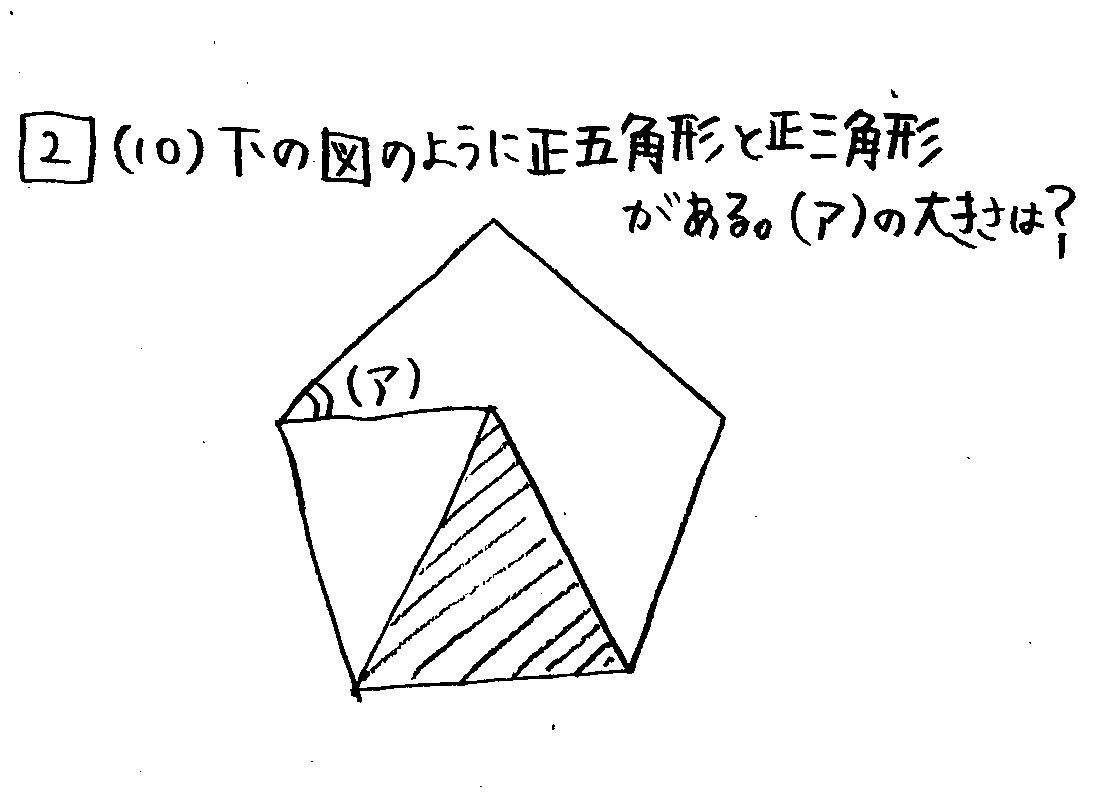 2 (10) 下の図のように正五角形と正三角形
がある。(ア)の大きさは?
(ア)